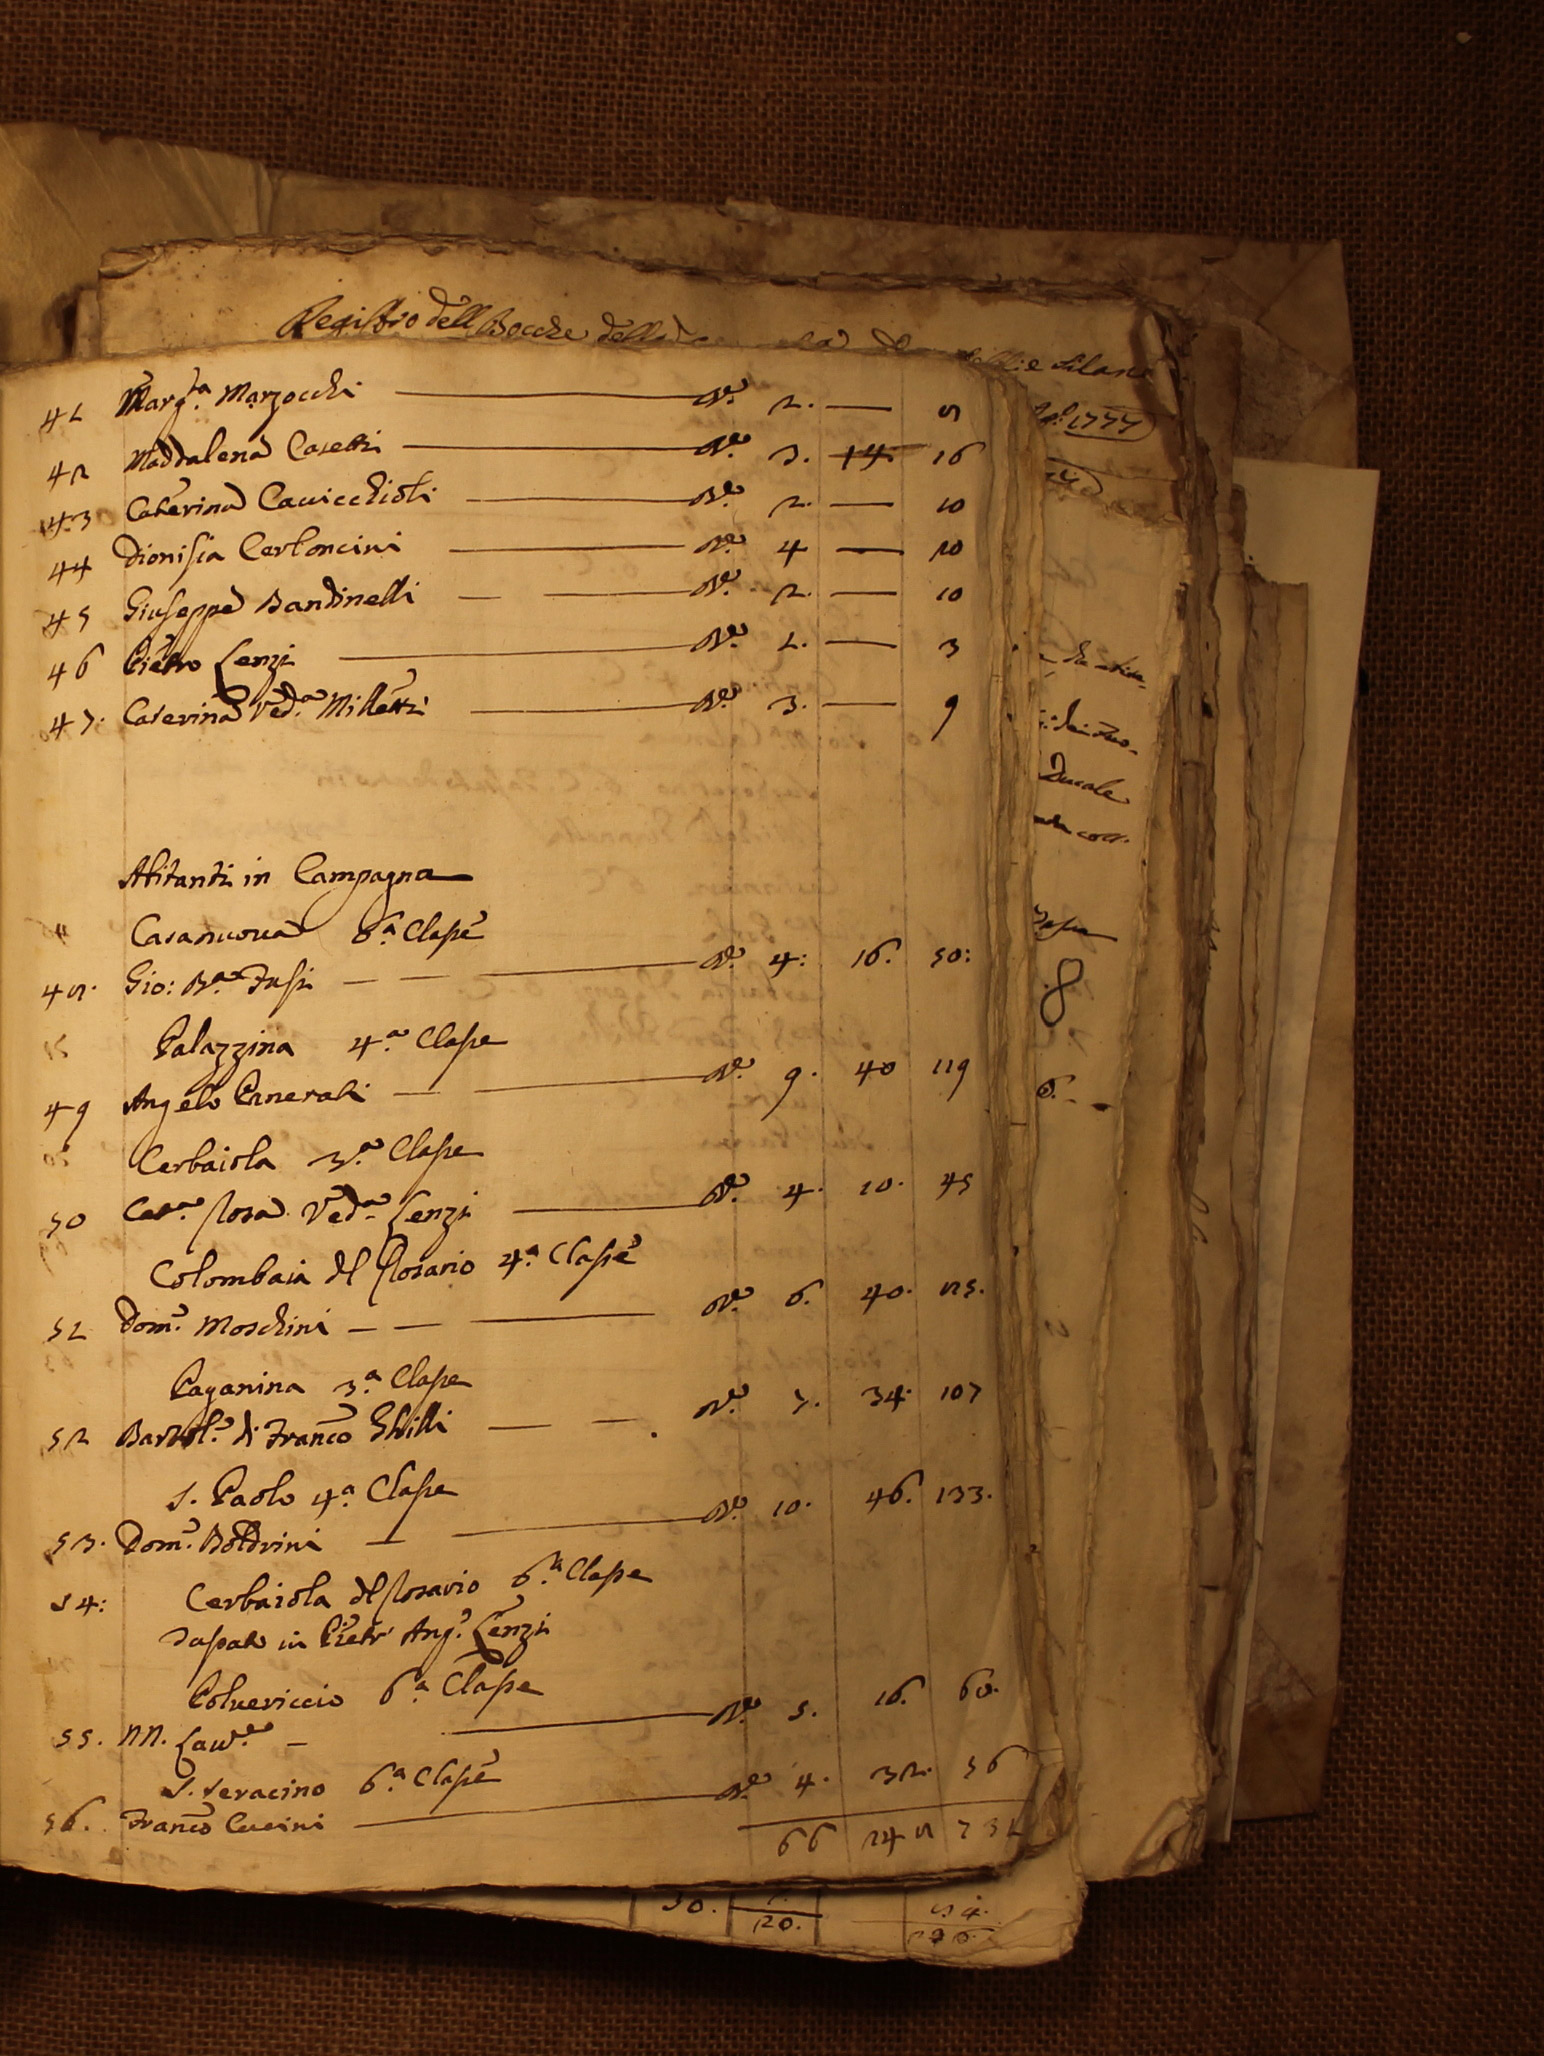 Registro dell Bocche della
Silano
1777
41 Marg.ta Marzocchi N.o 1. — 5
42 Maddalena Casetti N.o 3. 14. 16
43 Caterina Cavicchioli N.o 2. — 10
44 Dionisia Certoncini N.o 4 — 10
45 Giuseppe Bandinelli N.o 2. — 10
46 Pietro Lenzi N.o 1. — 3
47. Caterina Ved.a Milletti N.o 3. — 9
Abitanti in Campagna
Casanuova 6.a Classe
48. Gio: B.a Fusi N.o 4: 16. 50:
Palazzina 4.a Classe
49 Angelo Panerati N.o 9. 40 119
Cerbaiola 3.a Classe
50 Cat.a Rosa Ved.a Lenzi N.o 4. 10. 45
Colombaia del Rosario 4.a Classe
51 Dom.o Moschini N.o 6. 40. 85.
Paganina 3.a Classe
52 Bartol.o di Franco Ghilli N.o 7. 34. 107
S. Paolo 4.a Classe
53. Dom.o Boldrini N.o 10. 46. 133.
54: Cerbaiola del Rosario 6.a Classe
Passato in Pietr' Ang.o Lenzi
Polvericcio 6.a Classe
55. NN. Lav.e N.o 5. 16. 60.
S. Seracino 6.a Classe
56. Franco Cucini N.o 4. 32. 56
66 248 731
Ducale
8
6.
50.
20.
84.